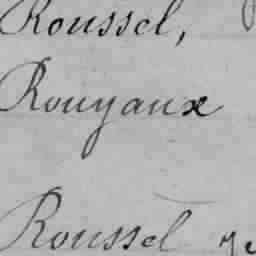 Roussel,
Rouyaux
Roussel